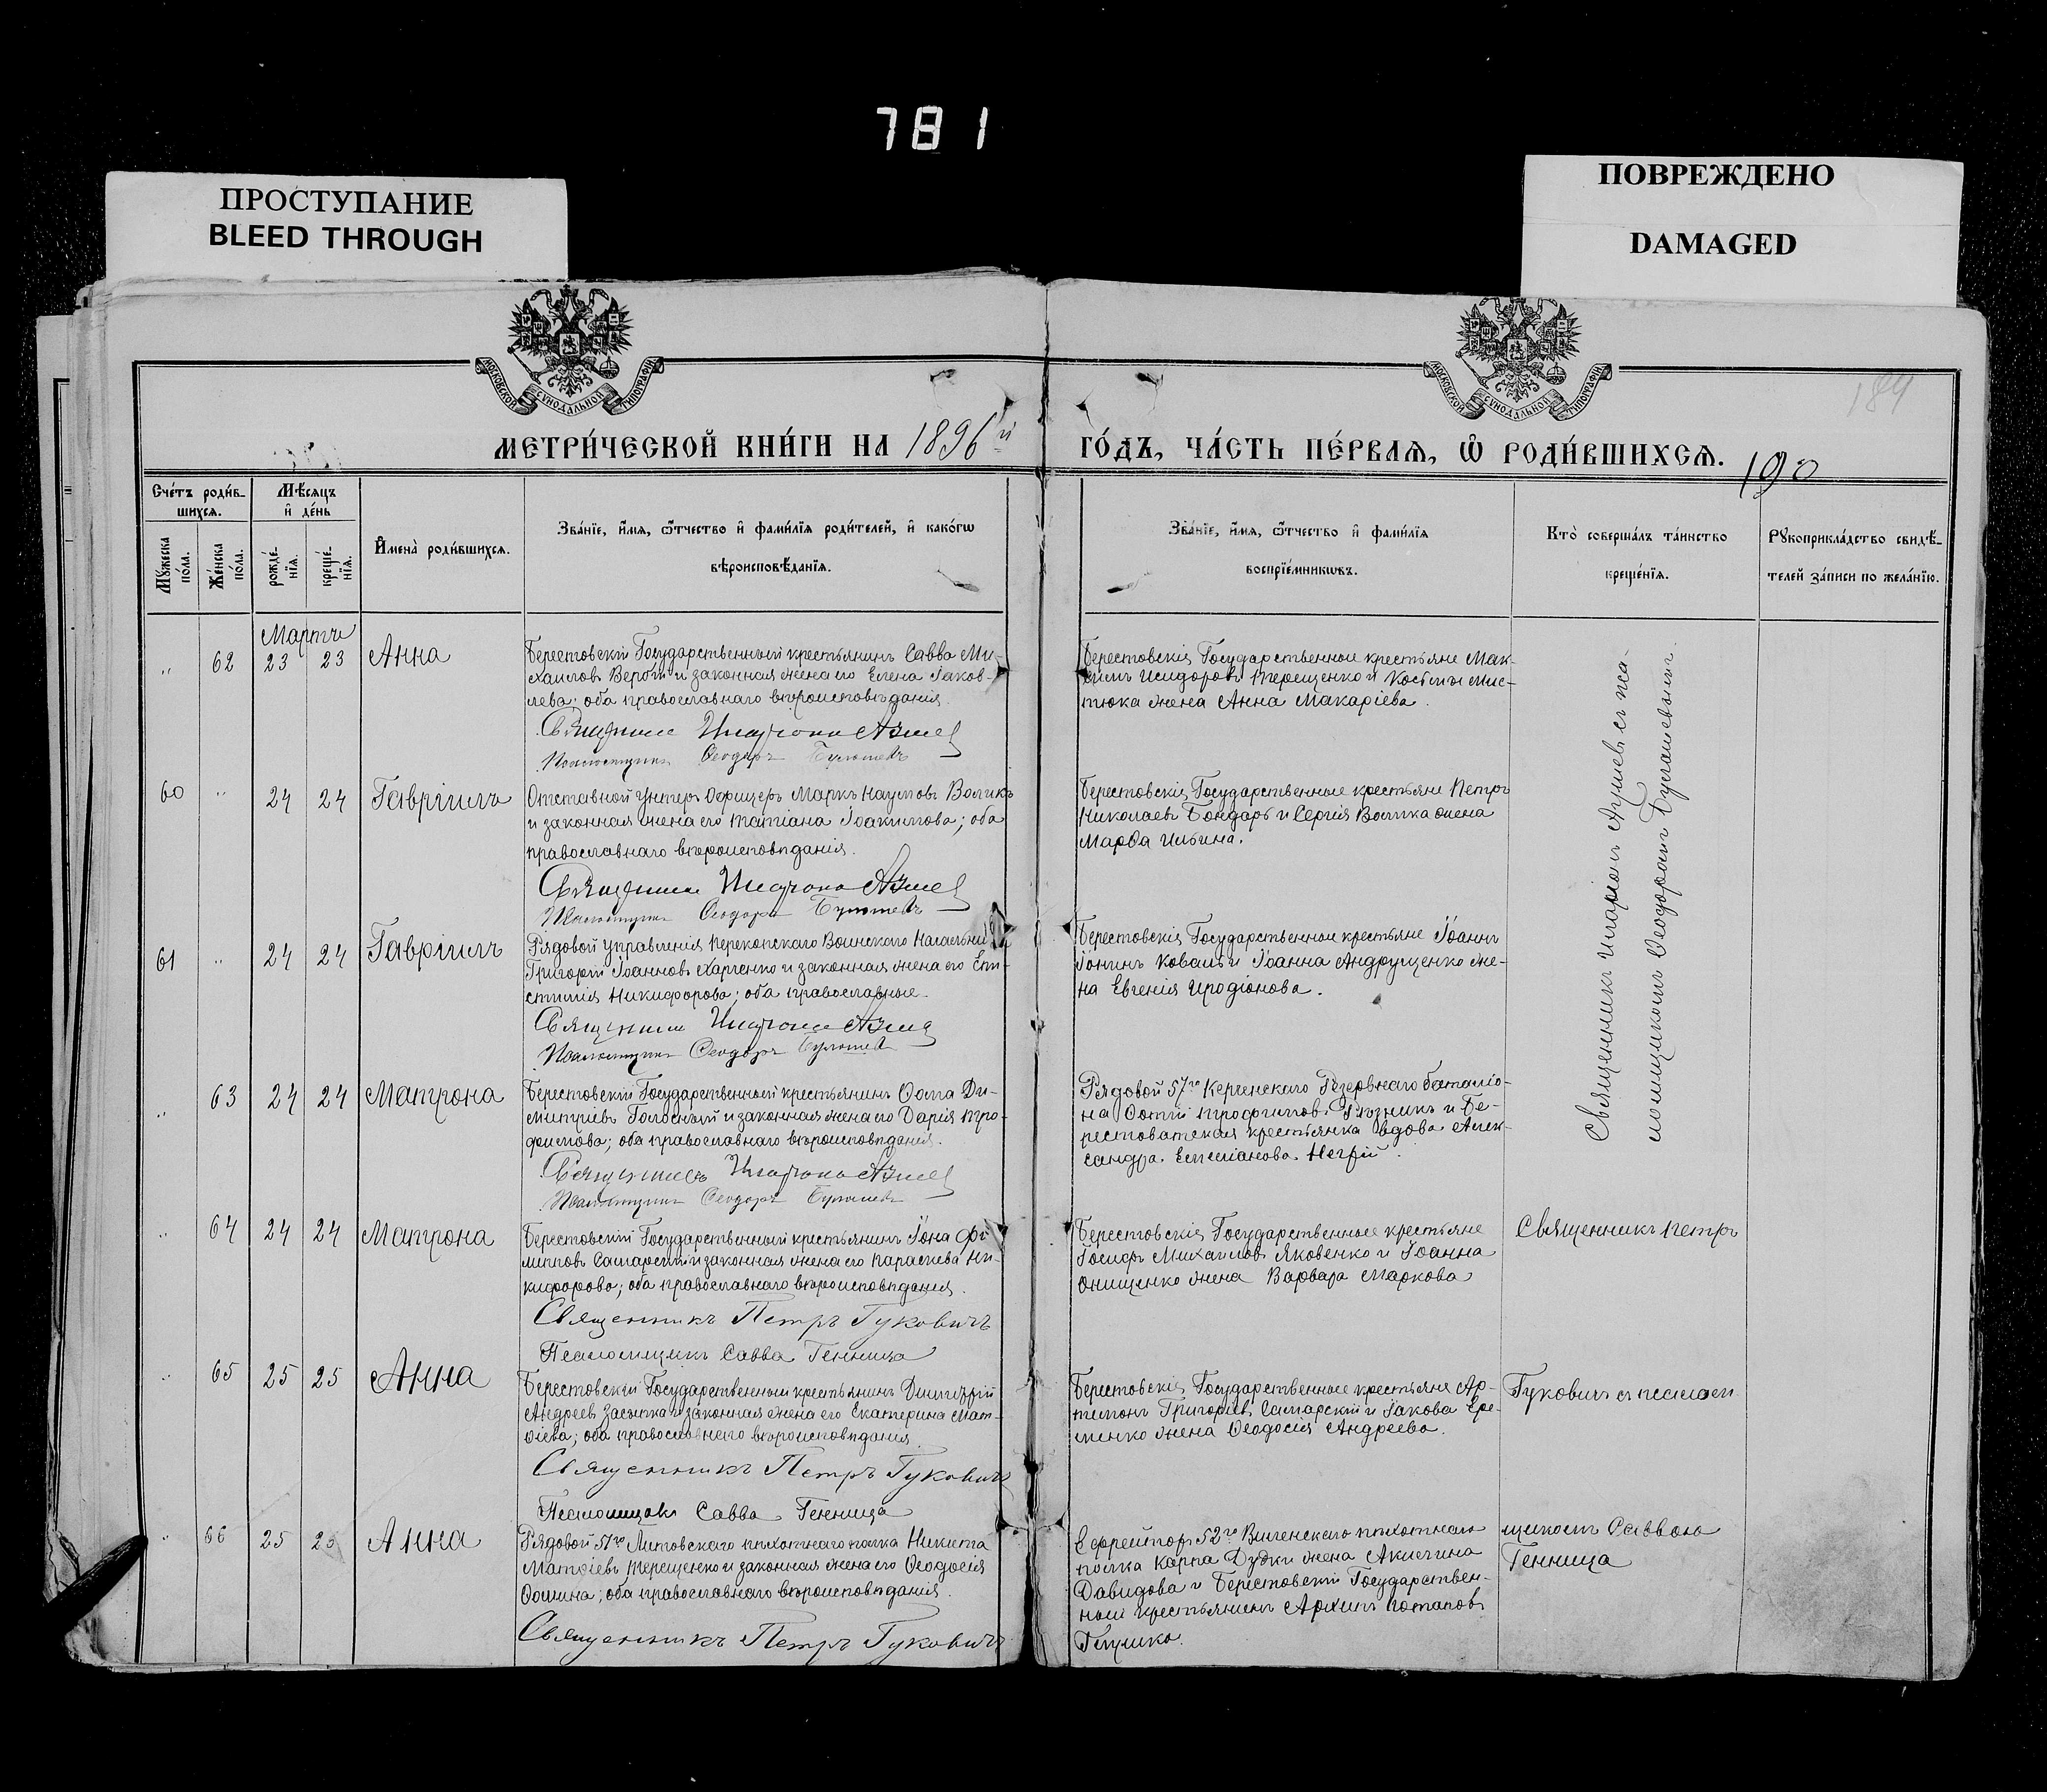 781
ПРОСТУПАНИЕ
BLEED THROUGH
ПОВРЕЖДЕНО
DAMAGED
МОСКОВСКОЙ СѴНОДАЛЬНОЙ ТИПОГРАФІИ
МОСКОВСКОЙ СѴНОДАЛЬНОЙ ТИПОГРАФІИ
184
МЕТРИ́ЧЕСКОЙ КНИ́ГИ НА 1896й ГО́ДЪ, ЧА́СТЬ ПЕ́РВАЯ, Ѽ РОДИ́ВШИХСЯ.
190
Сче́тъ роди́в-
шихся.
Мѣ́сяцъ
и̂ де́нь
Мꙋжеска по́ла.
Же́нска по́ла.
рожде́-нїя.
креще́-нїя.
И̂мена̀ роди́вшихся.
Зва́нїе, и̂́мя, ѻ̂́тчество и̂ фами́лїя роди́телей, и̂ како́гѡ
вѣроисповѣ́данїя.
Зва́нїе, и̂́мя, ѻ̂́тчество и̂ фами́лїя
воспрїе́мникѡвъ.
Кто̀ соверша́лъ та́инство
креще́нїя.
Рꙋкоприкла́дство свидѣ́-
телей за́писи по жела́нїю.
Мартъ
" 62 23 23 Анна
Берестовскій Государственный крестьянинъ Савва Ми-
хаиловъ Вербій и законная жена его Елена Іаков-
лева; оба православнаго вѣроисповѣданія.
Священникъ Иларіонъ
Псаломщикъ Ѳеодоръ
Берестовскія Государственные крестьяне Мак-
симъ Исидоровъ Терещенко и Косьмы Мис-
тюка жена Анна Макаріева.
60 " 24 24 Гавріилъ
Отставной Унтеръ Офицеръ Маркъ Наумовъ Воликъ
и законная жена его Татіана Іоакимова; оба
православнаго вѣроисповѣданія.
Священникъ Иларіонъ
Псаломщикъ Ѳеодоръ
Берестовскія Государственные крестьяне Петръ
Николаевъ Бондарь и Сергія Волика жена
Марѳа Ильина.
61 " 24 24 Гавріилъ
Рядовой Управленія Перекопскаго Воинскаго Начальника
Григорій Іоанновъ Харченко и законная жена его Епи-
стимія Никифорова; оба православные.
Священникъ Иларіонъ
Псаломщикъ Ѳеодоръ
Берестовскія Государственные крестьяне Іоаннъ
Іонинъ Коваль и Іоанна Андрущенко же-
на Евгенія Иродіонова.
" 63 24 24 Матрона
Берестовскій Государственный крестьянинъ Ѳома Ди-
митріевъ Голосный и законная жена его Дарія Тро-
фимова; оба православнаго вѣроисповѣданія.
Священникъ Иларіонъ
Псаломщикъ Ѳеодоръ
Рядовой 57го Керченскаго Резервнаго баталіо-
на Фотій Трофимовъ Рѣзникъ и Бе-
рестоватская крестьянка вдова Алек-
сандра Емиліанова Негрій.
Священникъ Иларіонъ съ пса-
ломщикомъ Ѳеодоромъ
" 64 24 24 Матрона
Берестовскій Государственный крестьянинъ Іона Фи-
липповъ Самарскій и законная жена его Параскева Ни-
кифорова; оба православнаго вѣроисповѣданія.
Священникъ Петръ Гуковичъ
Псаломщикъ Савва Генница
Берестовскія Государственные крестьяне
Іосифъ Михаиловъ Яковенко и Іоанна
Онищенко жена Варвара Маркова
Священникъ Петръ
" 65 25 25 Анна
Берестовскій Государственный крестьянинъ Димитрій
Андреевъ Засыпка и законная жена его Екатерина Мат-
ѳіева; оба православнаго вѣроисповѣданія
Священникъ Петръ Гуковичъ
Псаломщикъ Савва Генница
Берестовскія Государственные крестьяне Ар-
тимонъ Григоріевъ Самарскій и Іакова Ере-
менко жена Ѳеодосія Андреева.
Гуковичъ съ псалом
" 66 25 25 Анна
Рядовой 51го Литовскаго пѣхотнаго полка Никита
Матѳіевъ Терещенко и законная жена его Ѳеодосія
Ѳомина; оба православнаго вѣроисповѣданія.
Священникъ Петръ Гуковичъ
Ефрейтора 52го Виленскаго пѣхотнаго
полка Карпа Дудки жена Акилина
Давидова и Берестовскій Государствен-
ный крестьянинъ Архипъ Потаповъ
щикомъ Саввою
Генница